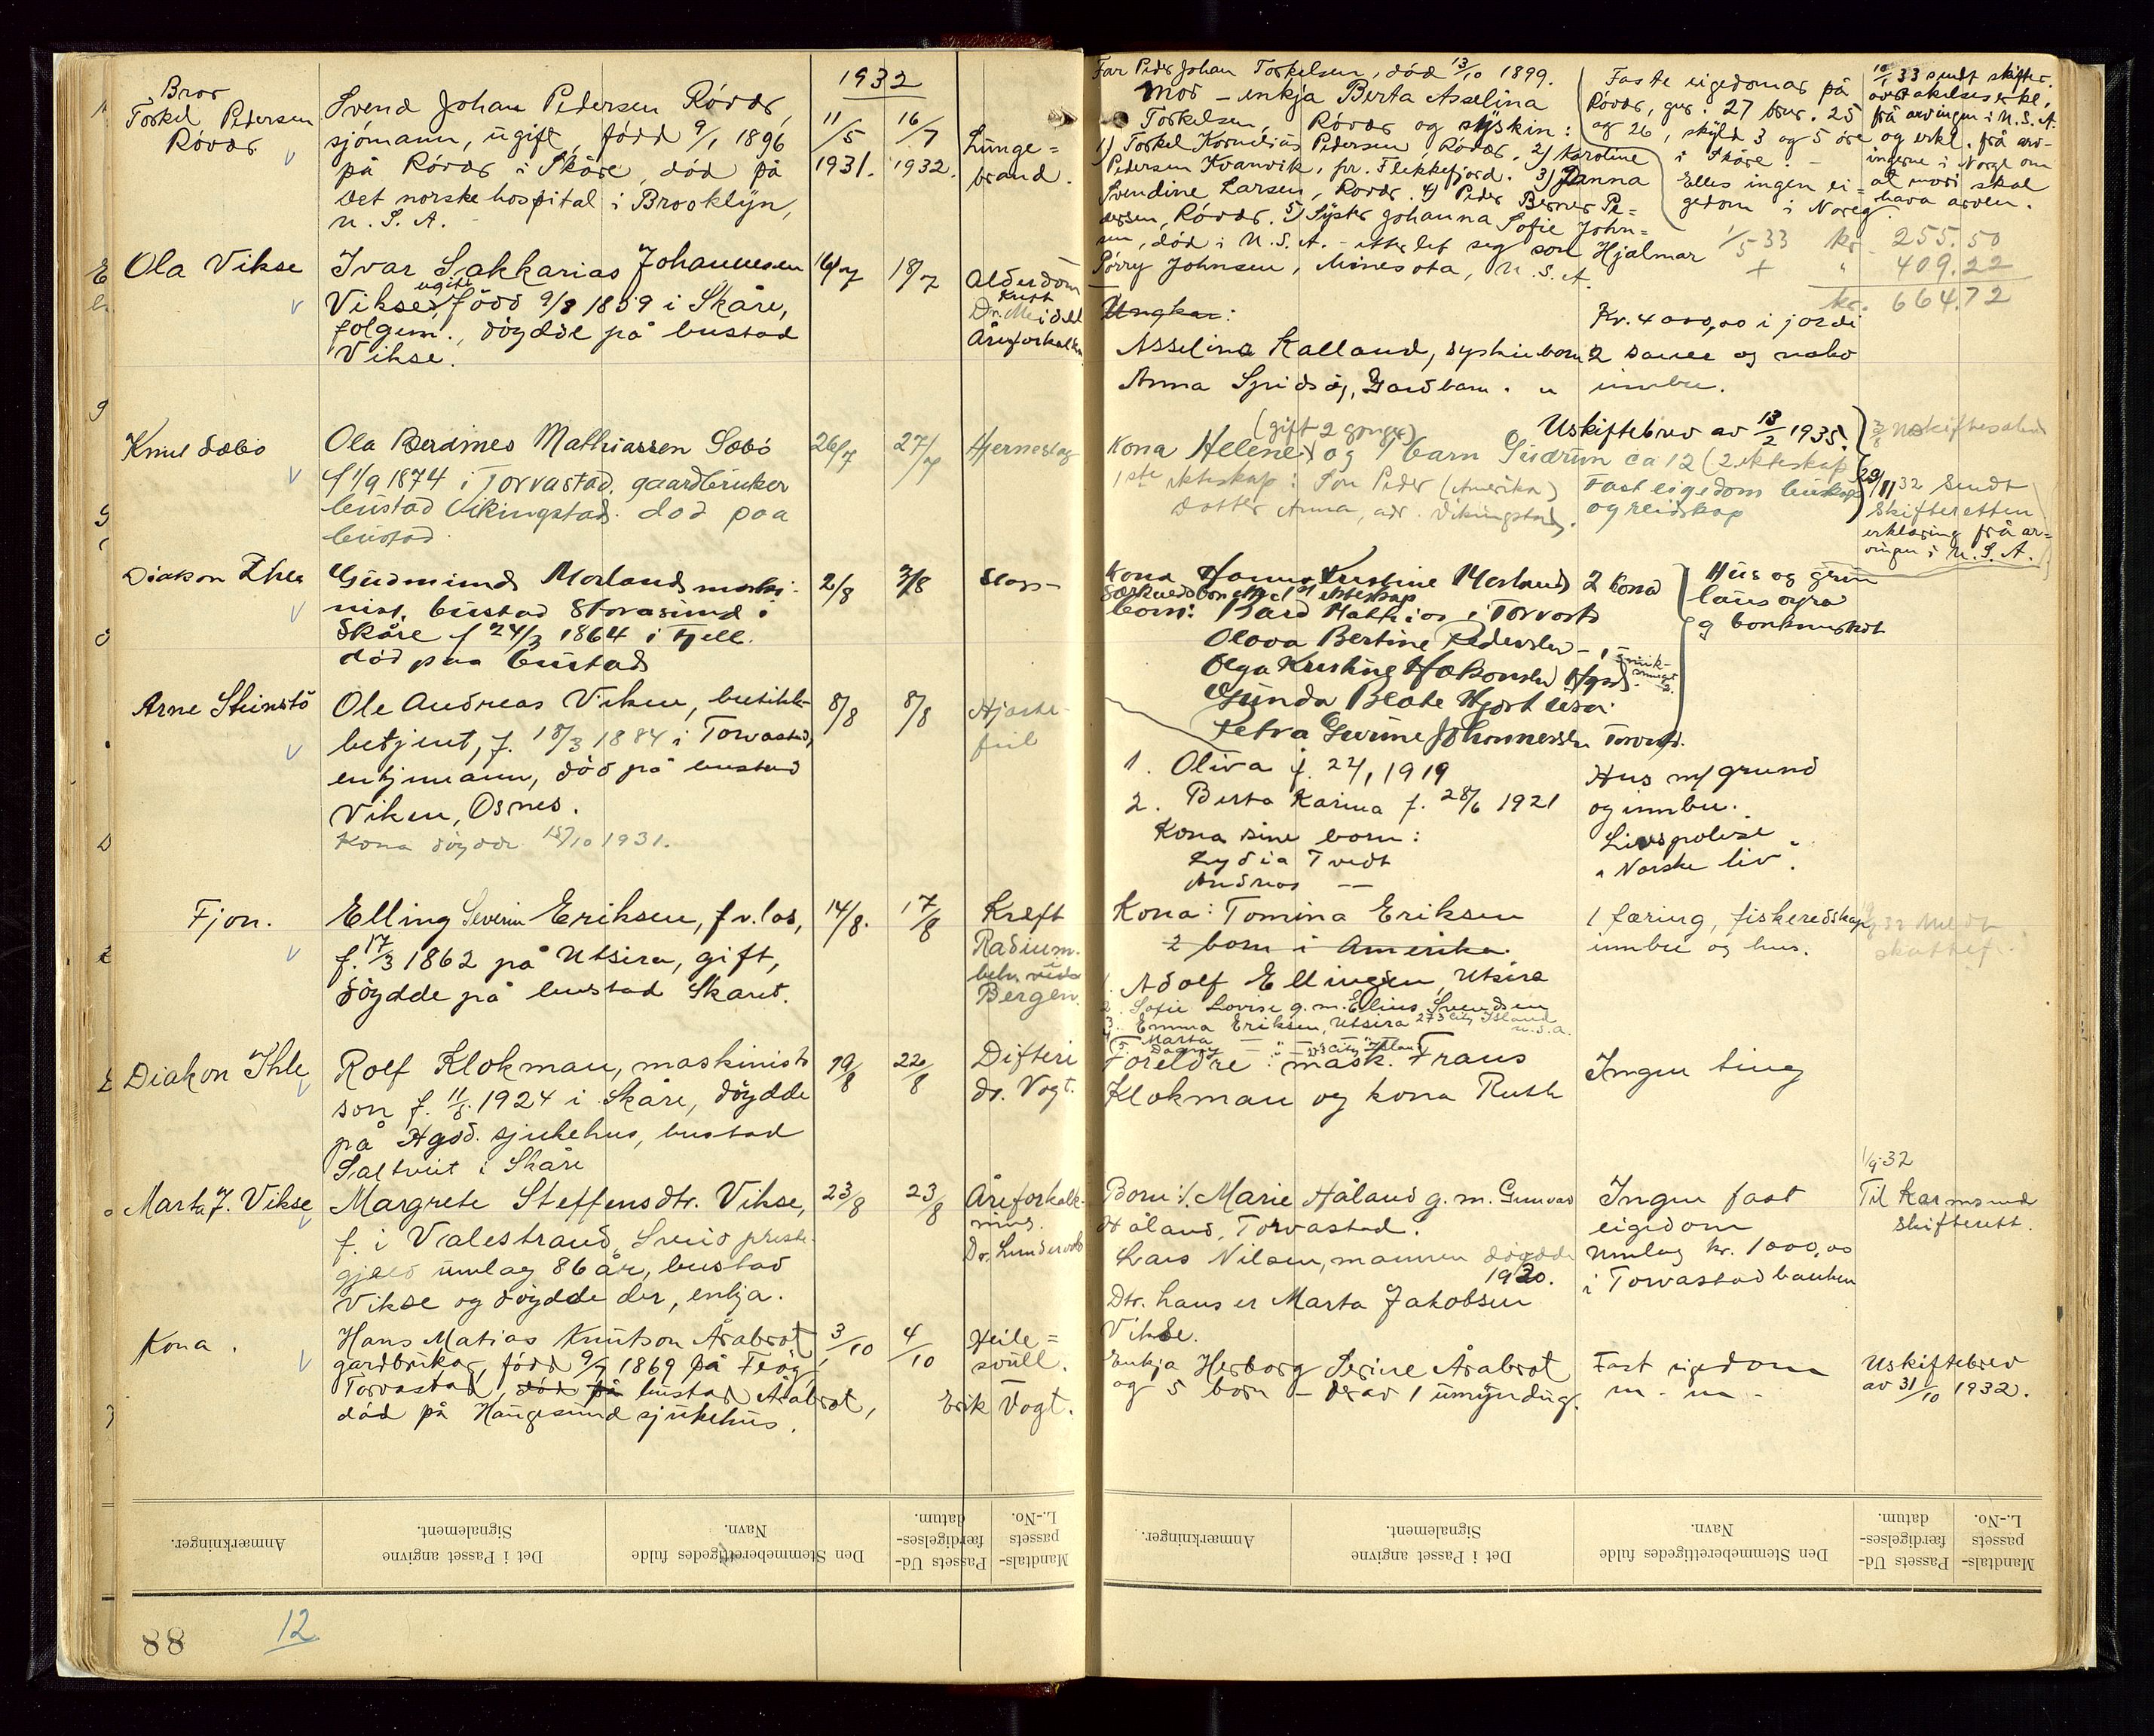 1932
Bror
Torkel Pedersen
Rövær
Svend Johan Pedersen Rövær,
sjömann, ugift, född 9/1 1896
på Rövær i Skåre, död på
Det norske hospital i Brooklyn,
U. S. A.
11/5 1931.
16/7 1932.
Lunge=
brand.
Far Peder Johan Torkelsen, död 13/10 1899.
Mor - enkja Berta Asselina
Torkelsen, Rövær og syskin:
1) Torkel Kornelius Pedersen, Rövær. 2) Karoline
Pedersen Kvanvik, pr. Flekkefjord. 3) Janna
Svendine Larsen, Rövær. 4) Peder Berner Pe=
dersen, Rövær. 5) Syster Johanna Sofie John=
sen, död i U. S. A. - etterlet seg son Hjalmar
Perry Johnsen, Minesota, U. S. A.
Faste eigedomar på
Rövær, gnr. 27 bnr. 25
og 26, skyld 3 og 5 öre
i Skåre. -
Elles ingen ei=
gedom i Noreg.
10/1 33 sendt skifter.
overtakelseserkl.
frå arvingen i U. S. A.
og erkl. frå arv-
ingerne i Norge om
at mori skal
hava arven.
1/5 33 kr. 255.50
+ " 409.22
kr. 664.72
Ola Vikse
Ivar Sakkarias Johannesen
Vikse, ugift född 9/8 1859 i Skåre,
folgem., döydde på bustad
Vikse.
16/7
18/7
Alderdom
Kreft
Dr. Meidell
Åreforkalkn
Ungkar:
Asselina Kalland, syskinborn
Anna
Kr. 4000,00 i jordi
2 sauer og noko
innbu.
Knut Sæbö
Ola Berdines Mathiassen Sæbö
f 1/9 1874 i Torvastad. gaardbruker
bustad Vikingstad. död paa
bustad
26/7
27/7
Hjerneslag
(gift 2 gonger)
Kona Helene og 1 barn Gudrun ca 12 (2 ekteskap)
1ste ekteskap: Son Peder (Amerika)
Dotter Anna, adr. Vikingstad.
Uskiftebrev av 13/2 1935.
Fast eigedom buskap
og reidskap
29/11 32 Sendt
skifteretten
erklæring frå ar=
vingen i U. S. A.
Diakon Ihle
Gudmund Morland maski-
nist, bustad Storasund i
Skåre f 24/3 1864 i Fjell.
död paa bustad
2/8
3/8
Slag
Kona Hanna Kristine Morland 2 Kona
born: Bård Mathias i Torvast
Olava Bertine Pedersen
Olga Kristine Håkonsen Hgsd.
Gunda Beate Hjort
Petra Gurine Johannessen Torvast.
Hus og grun
laus öyra
og bankinnskot
Arne Steinstö
Ole Andreas Viken, butikk-
betjent, f. 18/3 1884 i Torvastad,
enkjemann, död på bustad
Viken, Osnes.
Kona döydde 15/10 1931.
8/8
8/8
Hjarte-
feil
1. Oliva f. 24/1 1919
2. Berta Karina f. 28/6 1921
Kona sine born:
Lydia Tvedt
Andreas —
Hus m/ grund
og innbu.
Livspolise
" Norske liv".
Fjon.
Elling Severin Eriksen, f.v. los,
f. 17/3 1862 på Utsira, gift,
döydde på bustad Skåret.
14/8.
17/8
Kreft
Radium.
beh. ved
Bergen.
Kona: Tomina Eriksen
2 born i Amerika.
1. Adolf Ellingsen, Utsira
2. Sofie Lovise g. m. Elius Svendsen
273 City Island
U.S.A.
3. Emma Eriksen, Utsira
4. Marta — " —
5. Dagny — " — City Island
1 færing, fiskeredskap,
innbu og hus.
Diakon Ihle
Rolf Klokman, maskinist
son f. 11/8 1924 i Skåre, döydde
på Hgsd. sjukehus, bustad
Saltveit i Skåre
19/8
22/8
Difteri
dr. Vogt.
Foreldre: mask. Frans
Klokman og kona Ruth
Ingen ting
Marta J. Vikse
Margrete Steffensdtr. Vikse,
f. i Valestrand, Sveio preste-
gjeld umlag 86 år, bustad
Vikse og döydde der, enkja.
23/8
23/8
Åreforkalk-
ning.
Born: 1. Marie Håland g. m. Gunvar
Håland, Torvastad.
Lars Nilsen, mannen döydde
1920.
Dtr. hans er Marta Jakobsen
Vikse.
Ingen fast
eigedom
Umlag kr. 1000,00
i Torvastad banken
1/9 32
Til Karmsund
skifterett.
Kona.
Hans Matias Knutson Årabrot,
gardbrukar, född 9/7 1869 på Feöy,
Torvastad, död på bustad Årabrot,
död på Haugesund sjukehus.
3/10
4/10
Heile=
svull.
Erik Vogt.
Enkja Herborg Serine Årabrot
og 5 born - derav 1 umyndug.
Fast eigedom
m. m.
Uskiftebrev
av 31/10 1932.
Anmærkninger.
Det i Passet angivne
Signalement.
Den Stemmeberettigedes fulde
Navn.
Passets Ud-
færdigelses-
datum.
Mandtals-
passets
L.-No.
Anmærkninger.
Det i Passet angivne
Signalement.
Den Stemmeberettigedes fulde
Navn.
Passets Ud-
færdigelses-
datum.
Mandtals-
passets
L.-No.
88
12